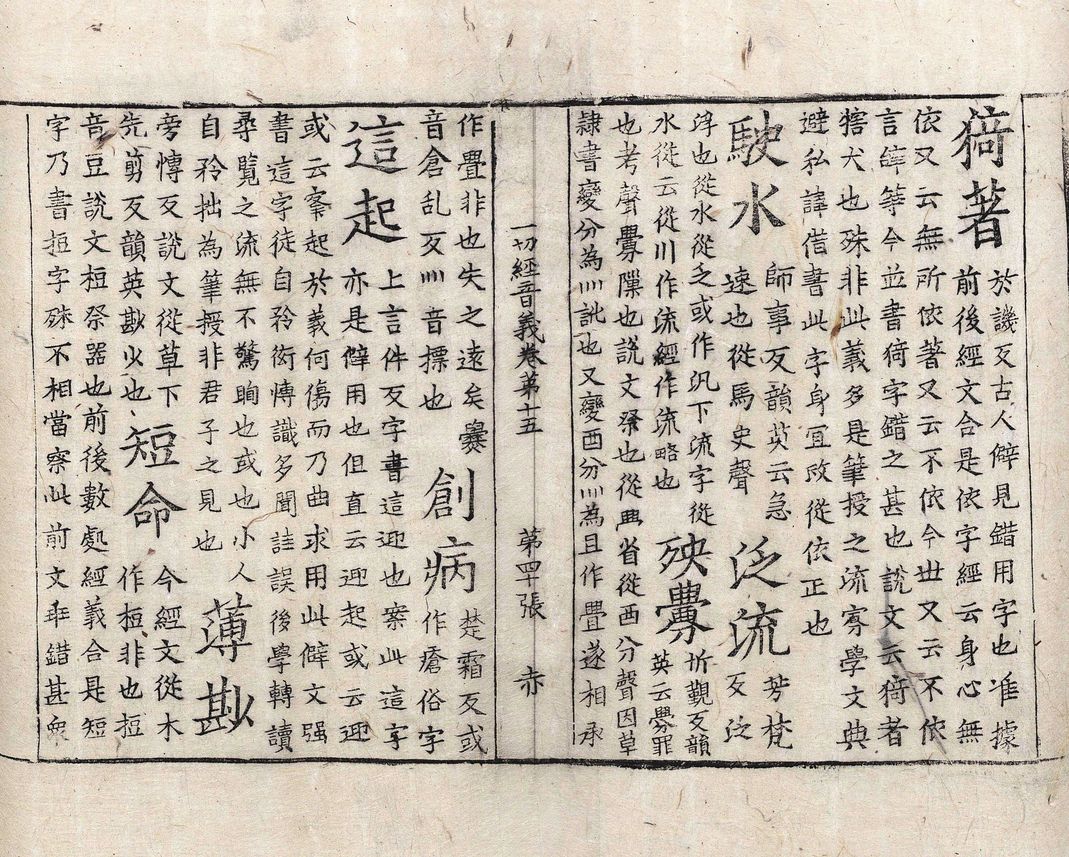 猗著
於譏反古人僻見錯用字也准據
前後經文合是依字經云身心無
依又云無所依著又云不依今世又云不依
言等今並書猗字錯之甚也說文云猗者
犗犬也殊非此義多是筆授之流寡學文典
避私諱借書此字身宜改從依正也
駛水
師事反韻英云急
速也從馬史聲
泛流
芳梵
反泛
浮也從水從乏或作汎下流字從
水從云從川作流經作流略也
殃釁
忻覲反韻
英云釁罪
也考聲釁隟也說文祭也從爨省從酉分聲因草
隷書變分為灬訛也又變酉分灬為且作疊遂相承
一切經音義卷第十五 第四十張 赤
作疊非也失之遠矣爨
音倉乱反灬音摽也
創病
楚霜反或
作瘡俗字
這起
上言件反字書這迎也案此這字
亦是僻用也但直云迎起或云迎
或云案起於義何傷而乃曲求用此僻文强
書這字徒自矜衒愽識多聞詿誤後學轉讀
尋覽之流無不驚眴也或也小人
自矜拙為筆授非君子之見也
薄尠
旁愽反說文從草下
先剪反韻英尠少也
短命
今經文從木
作梪非也梪
音豆說文梪祭器也前後數処經義合是短
字乃書梪字殊不相當察此前文乖錯甚衆